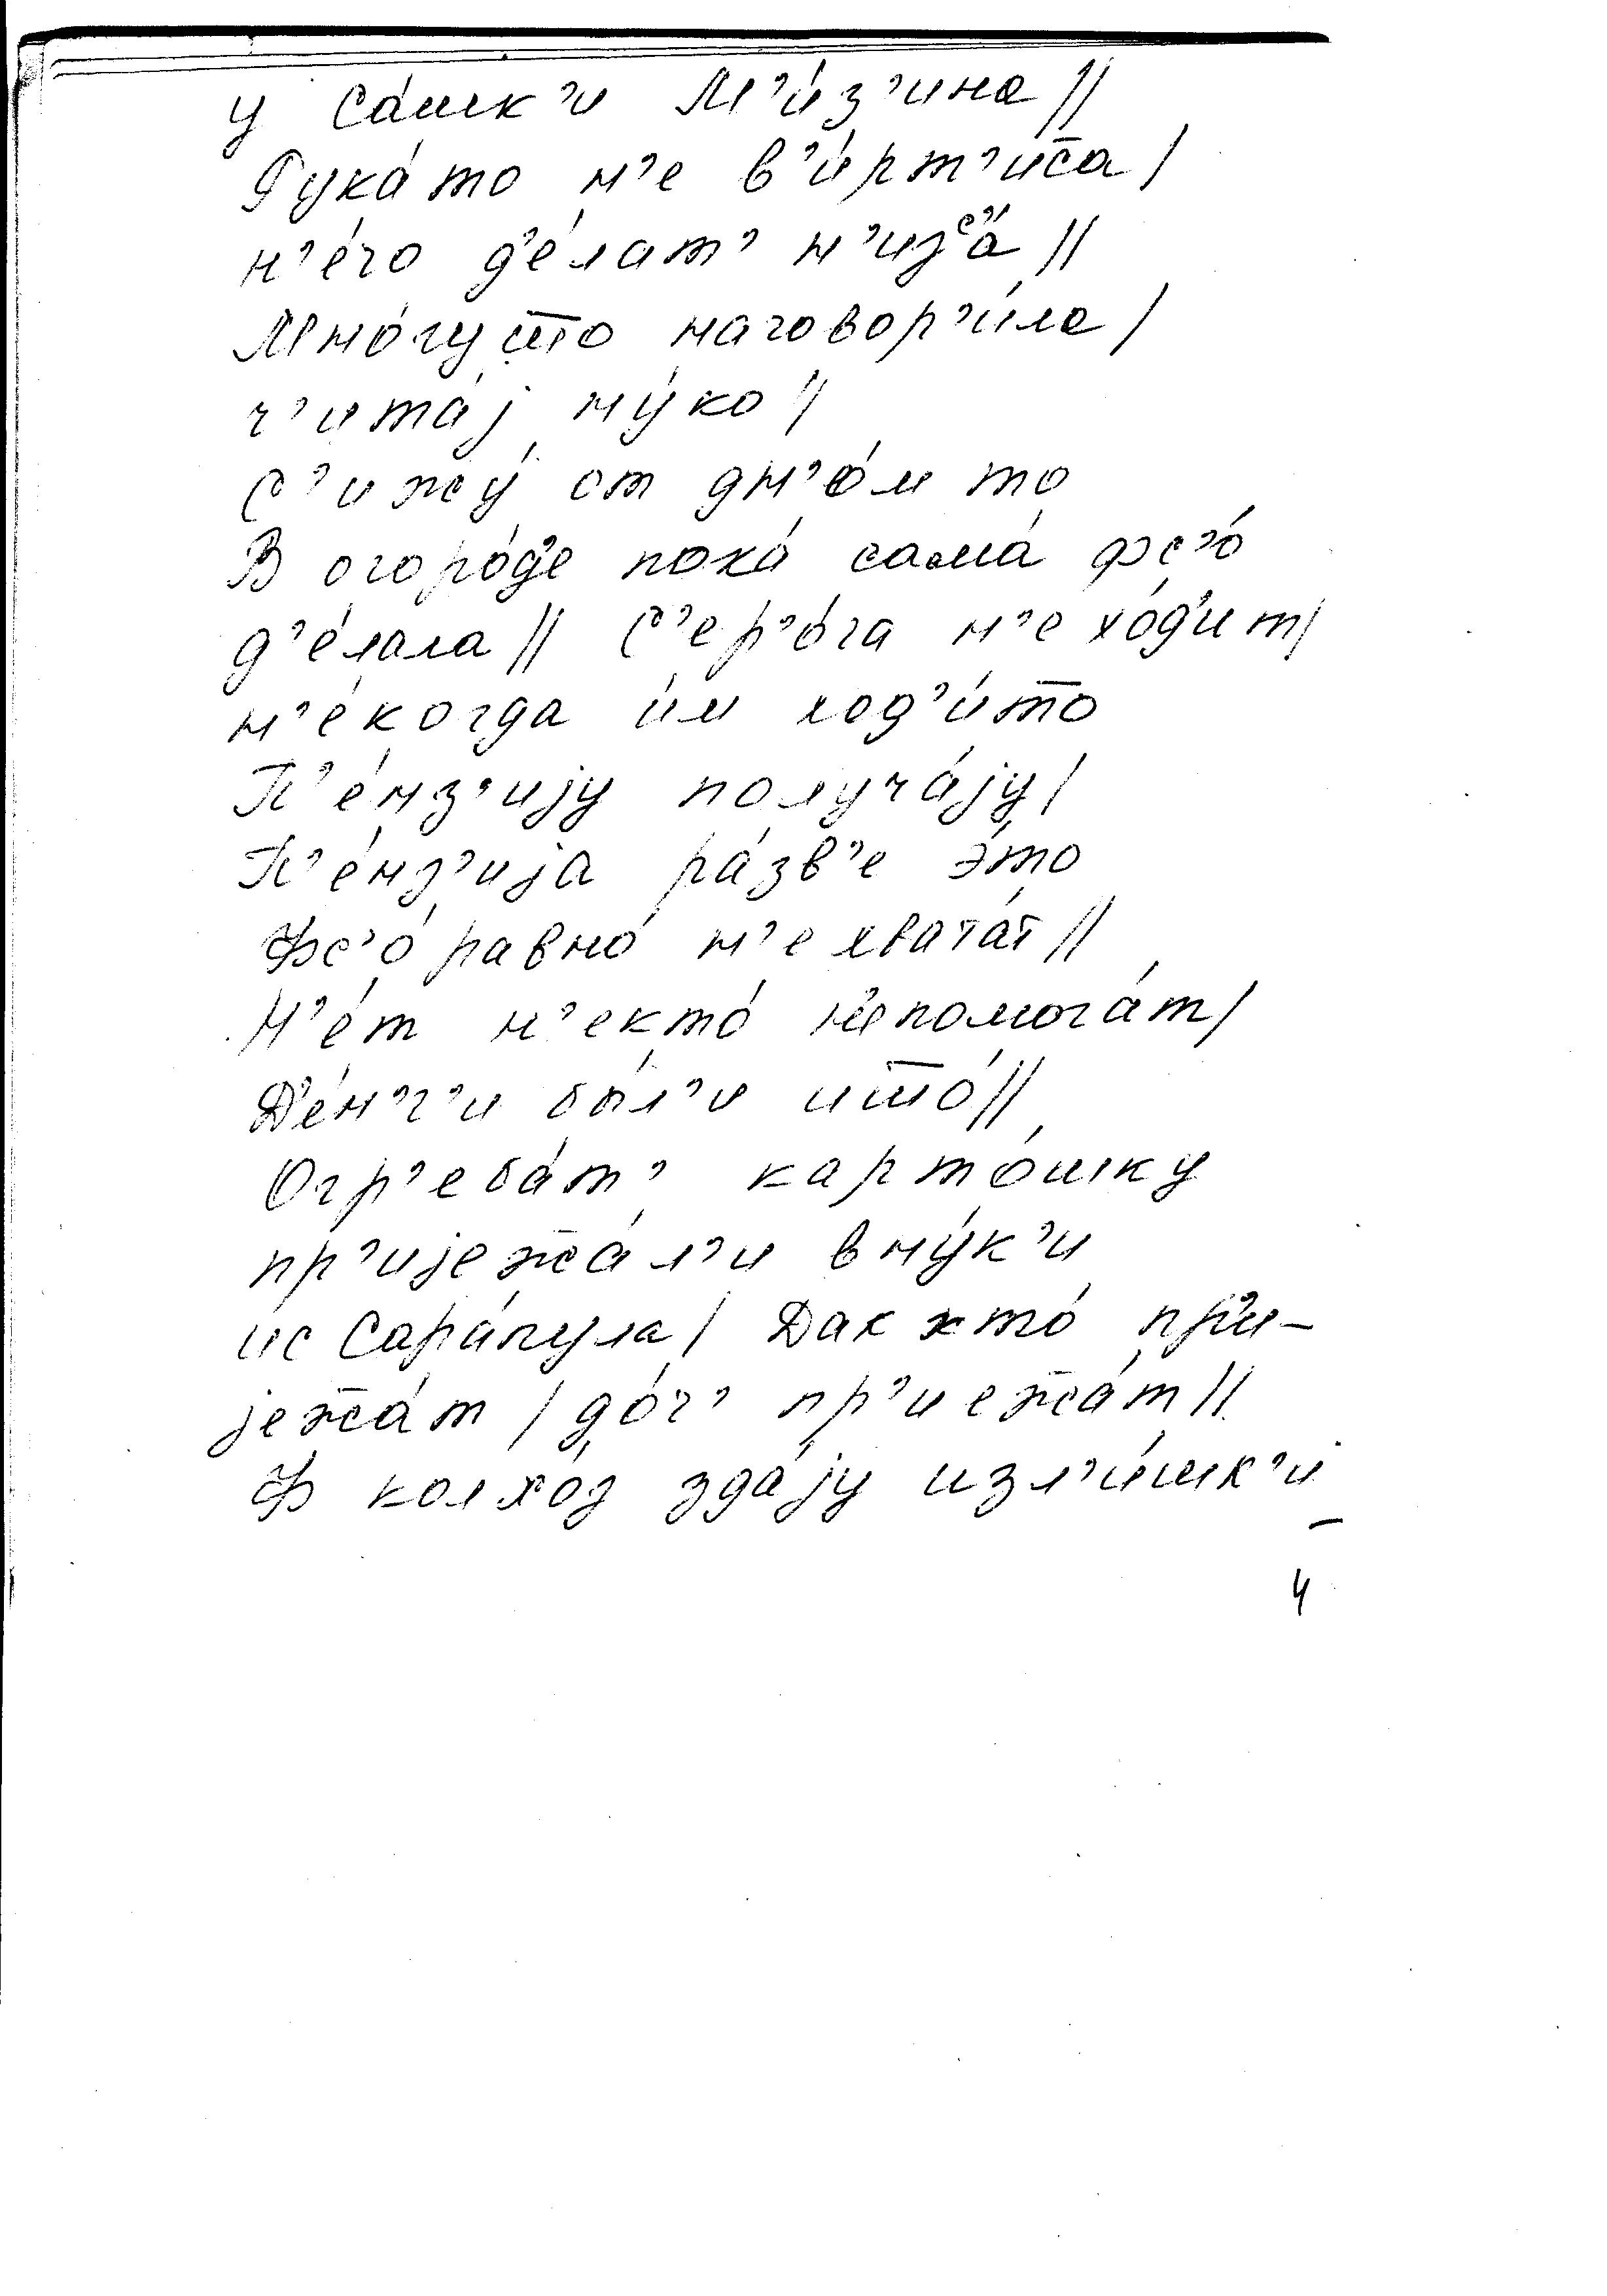 у Са́шк'и М'и́з'ина //
Рука́ то н'е в'и́рт'ица /
н'е́го д'е́лат' н'из'а́ //
Мно́гу што наговор'и́ла /
ч'ита́j ну́ко //
С'ижу́ от дн'о́м то
В огоро́д'е пока́ сама́ фс'о́
д'е́лала // С'ер'о́га н'е хо́д'ит /
н'е́когда и́м ход'и́то
П'е́нз'иjу получа́jу /
П'е́нз'иjа ра́зв'е э́то
Фс'о́ равно́ н'е хвата́т //
Н'е́т н'екто́ непомога́т /
Д'е́н'г'и бы́л'и што́ //
Огр'еба́т' карто́шку
пр'иjежа́л'и вну́к'и
ис Сара́пула / Дак хто́ пр'и-
jежа́т / до́ч' пр'иежа́т //
Ф колхо́з здаjу́ изл'и́шк'и
4